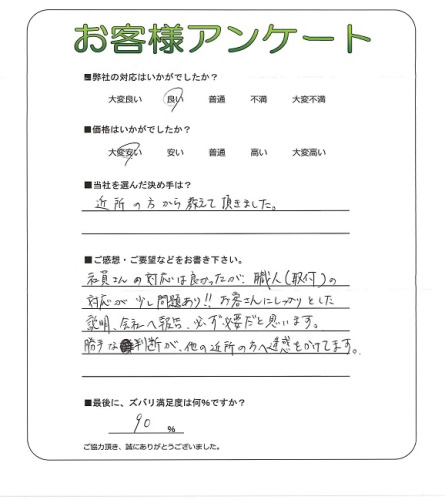 お客様アンケート
■弊社の対応はいかがでしたか？
大変良い 良い 普通 不満 大変不満
■価格はいかがでしたか？
大変安い 安い 普通 高い 大変高い
■当社を選んだ決め手は？
近所の方から教えて頂きました。
■ご感想・ご要望などをお書き下さい。
社員さんの対応は良かったが、職人(取付)の
対応が少し問題あり!! お客さんにしっかりとした
説明、会社へ報告、必ず必要だと思います。
勝手な判断が、他の近所の方へ迷惑をかけてます。
■最後に、ズバリ満足度は何％ですか？
90 ％
ご協力頂き、誠にありがとうございました。